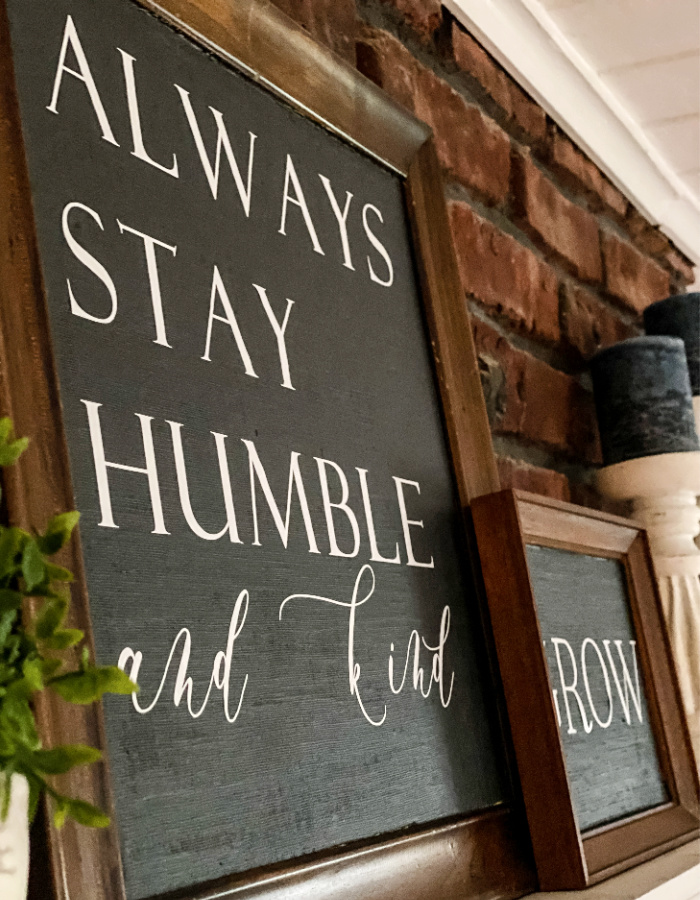 ALWAYS
STAY
HUMBLE
and kind
GROW